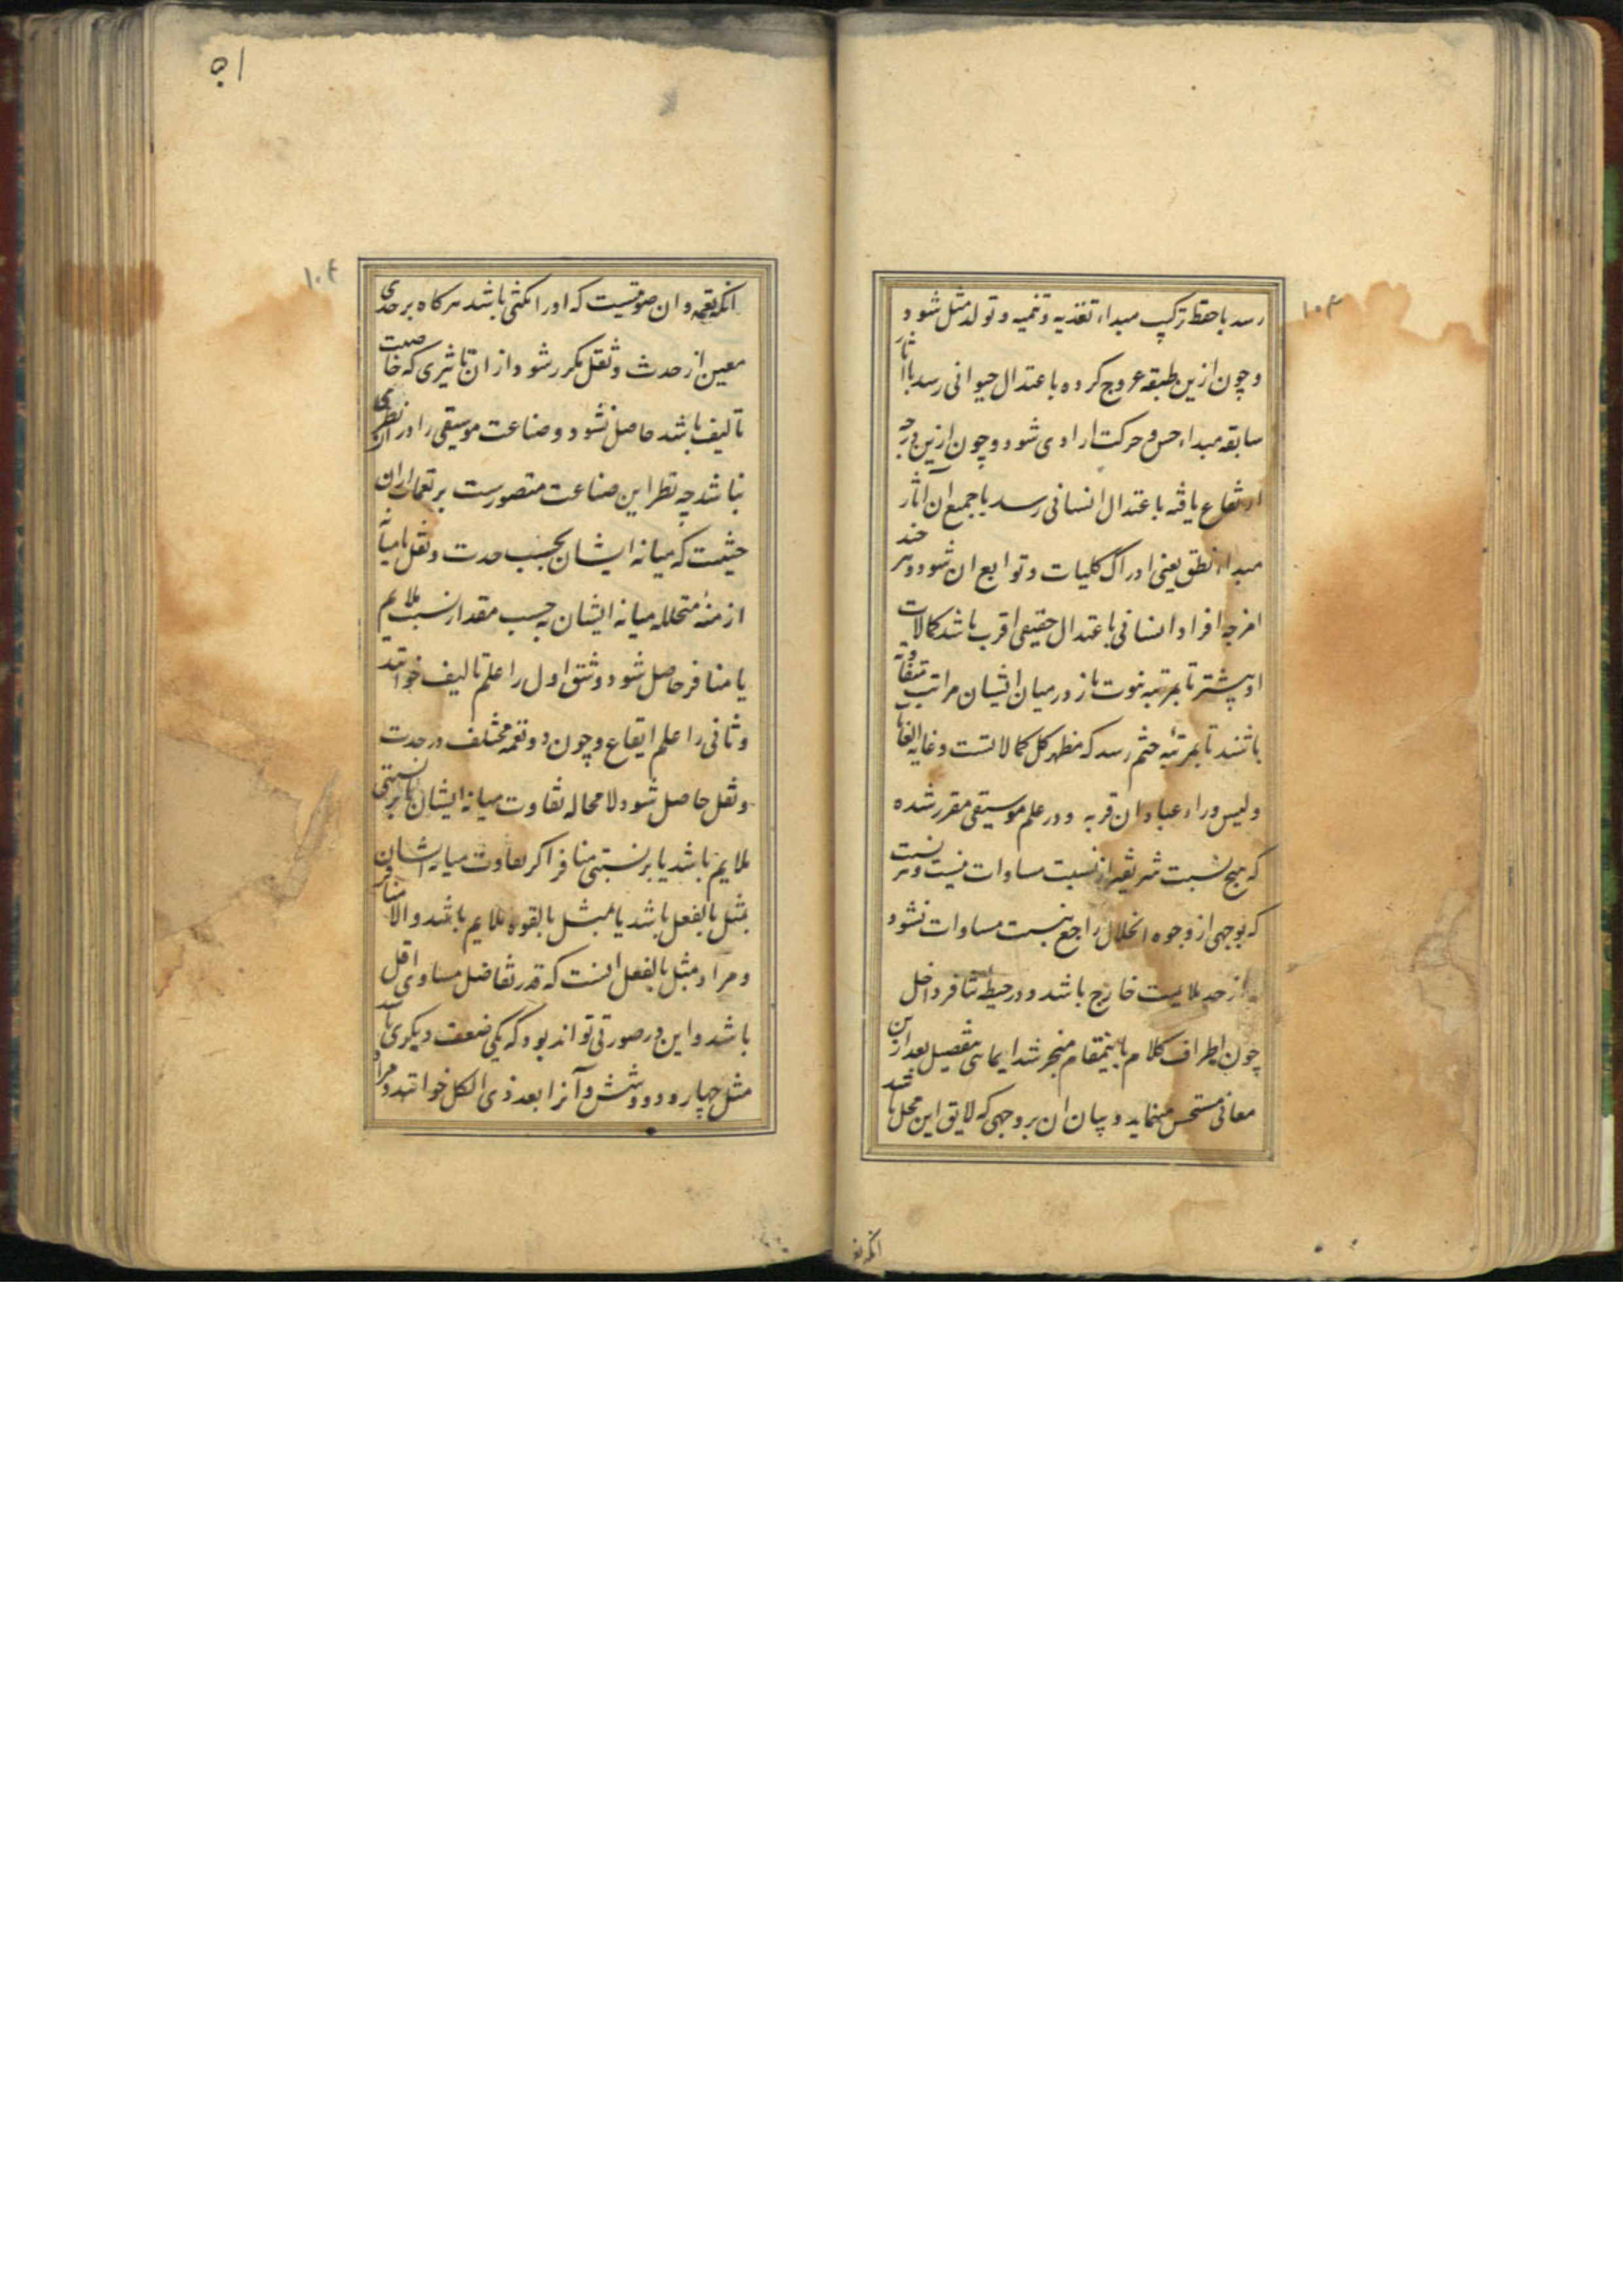 ۱۰۳
رسد با حفظ ترکیب مبداء تغذیه و تنمیه و تولد مثل شود
و چون ازین طبقه عروج کرده باعتدال حیوانی رسد باآثار
سابقه مبداء حس و حرکت ارادی شود و چون ازین درجه
ارتفاع یافته باعتدال انسانی رسد با جمیع ان آثار
مبداء نطق یعنی ادراک کلیات و توابع ان شود و هر چند
امزجه افراد انسانی باعتدال حقیقی اقرب باشد کمالات
او بیشتر تا بمرتبه نبوت باز در میان ایشان مراتب متفاوته
باشند تا بمرتبه ختم رسد که مظهر کل کمالاتست و غایه الغایات
و لیس وراء عبادان قریه و در علم موسیقی مقرر شده
که هیچ نسبت شریفتر از نسبت مساوات نیست و هر نسبت
که بوجهی از وجوه انحلال راجع بنسبت مساوات نشود
از حد ملایمت خارج باشد و در حیطه تنافر داخل
چون اطراف کلام باینمقام منجر شد ایمائی بتفصیل بعد ازین
معانی مستحسن مینماید و بیان ان بر وجهی که لایق این محل باشد
انکه نغمه
۵۱
۱۰۴
انکه نغمه و ان صوتیست که اورا مکثی باشد هرکاه بر حدی
معین از حدت و ثقل مکرر شود از ان تاثیری که خاصیت
تالیف باشد حاصل نشود و صناعت موسیقی را در ان نظری
نباشد چه نظر این صناعت مقصورست بر نغمات از ان
حیثیت که میانه ایشان بحسب حدت و ثقل یا میانه
ازمنهٔ متخلله میانه ایشان بحسب مقدار نسب ملایم
یا منافر حاصل شود و شق اول را علم تالیف خوانند
و ثانی را علم ایقاع و چون دو نغمه مختلف در حدت
و ثقل حاصل شود لامحاله تفاوت میانه ایشان یا بر نسبتی
ملایم باشد یا بر نسبتی منافر اکر تفاوت میانه ایشان
بمثل بالفعل باشد یا بمثل بالقوه ملایم باشد و الا منافر
و مراد بمثل بالفعل انست که قدر تفاضل مساوی اقل
باشد و این در صورتی تواند بود که یکی ضعف دیکری باشد
مثل چهار و دو و شش و آنرا بعد ذی الکل خوانند و مراد